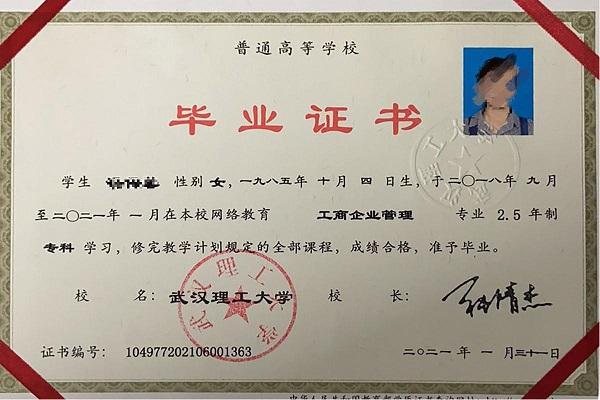 普通高等学校
毕业证书
学生 性别 女,一九八五年 十月 四日生,于二〇一八年 九月
至二〇二一年 一月在本校网络教育 工商企业管理 专业 2.5 年制
专科 学习,修完教学计划规定的全部课程,成绩合格,准予毕业。
校 名: 武汉理工大学 校 长:
武汉理工大学
证书编号: 104977202106001363 二〇二一年 一月三十一日